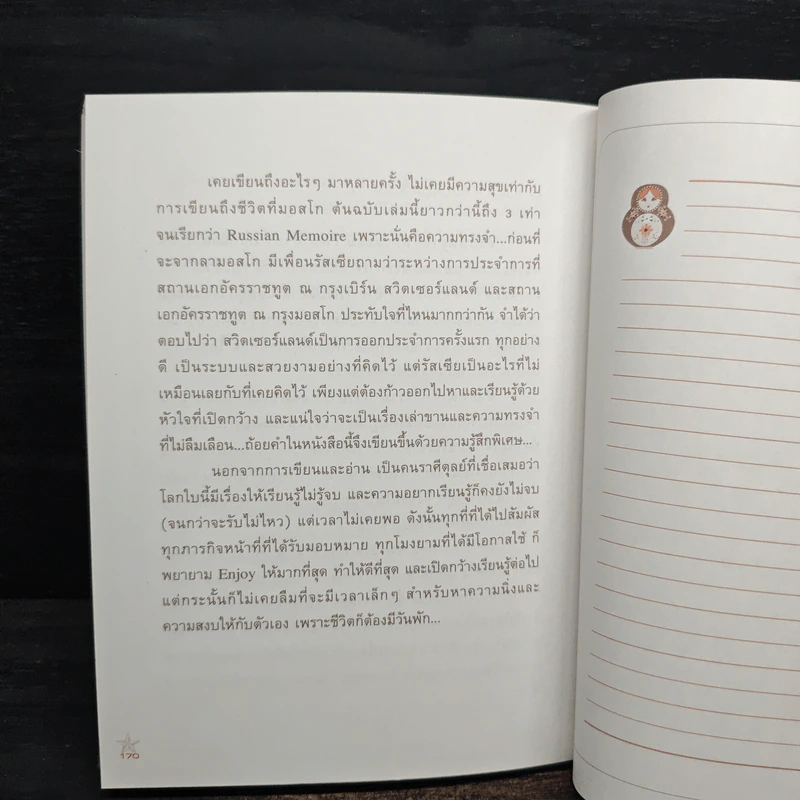 เคยเขียนถึงอะไรๆ มาหลายครั้ง ไม่เคยมีความสุขเท่ากับ
การเขียนถึงชีวิตที่มอสโก ต้นฉบับเล่มนี้ยาวกว่านี้ถึง 3 เท่า
จนเรียกว่า Russian Memoire เพราะนั่นคือความทรงจำ...ก่อนที่
จะจากลามอสโก มีเพื่อนรัสเซียถามว่าระหว่างการประจำการที่
สถานเอกอัครราชทูต ณ กรุงเบิร์น สวิตเซอร์แลนด์ และสถาน
เอกอัครราชทูต ณ กรุงมอสโก ประทับใจที่ไหนมากกว่ากัน จำได้ว่า
ตอบไปว่า สวิตเซอร์แลนด์เป็นการออกประจำการครั้งแรก ทุกอย่าง
ดี เป็นระบบและสวยงามอย่างที่คิดไว้ แต่รัสเซียเป็นอะไรที่ไม่
เหมือนเลยกับที่เคยคิดไว้ เพียงแต่ต้องก้าวออกไปหาและเรียนรู้ด้วย
หัวใจที่เปิดกว้าง และแน่ใจว่าจะเป็นเรื่องเล่าขานและความทรงจำ
ที่ไม่ลืมเลือน...ถ้อยคำในหนังสือนี้จึงเขียนขึ้นด้วยความรู้สึกพิเศษ...
นอกจากการเขียนและอ่าน เป็นคนราศีตุลย์ที่เชื่อเสมอว่า
โลกใบนี้มีเรื่องให้เรียนรู้ไม่รู้จบ และความอยากเรียนรู้ก็คงยังไม่จบ
(จนกว่าจะรับไม่ไหว) แต่เวลาไม่เคยพอ ดังนั้นทุกที่ที่ได้ไปสัมผัส
ทุกภารกิจหน้าที่ที่ได้รับมอบหมาย ทุกโมงยามที่ได้มีโอกาสใช้ ก็
พยายาม Enjoy ให้มากที่สุด ทำให้ดีที่สุด และเปิดกว้างเรียนรู้ต่อไป
แต่กระนั้นก็ไม่เคยลืมที่จะมีเวลาเล็กๆ สำหรับหาความนิ่งและ
ความสงบให้กับตัวเอง เพราะชีวิตก็ต้องมีวันพัก...
170